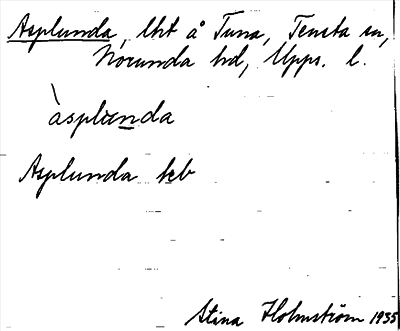 Asplunda, lht å Tuna, Tensta sn,
Norunda hd, Upps. l.
àsplunda
Asplunda kb
Stina Holmström 1935